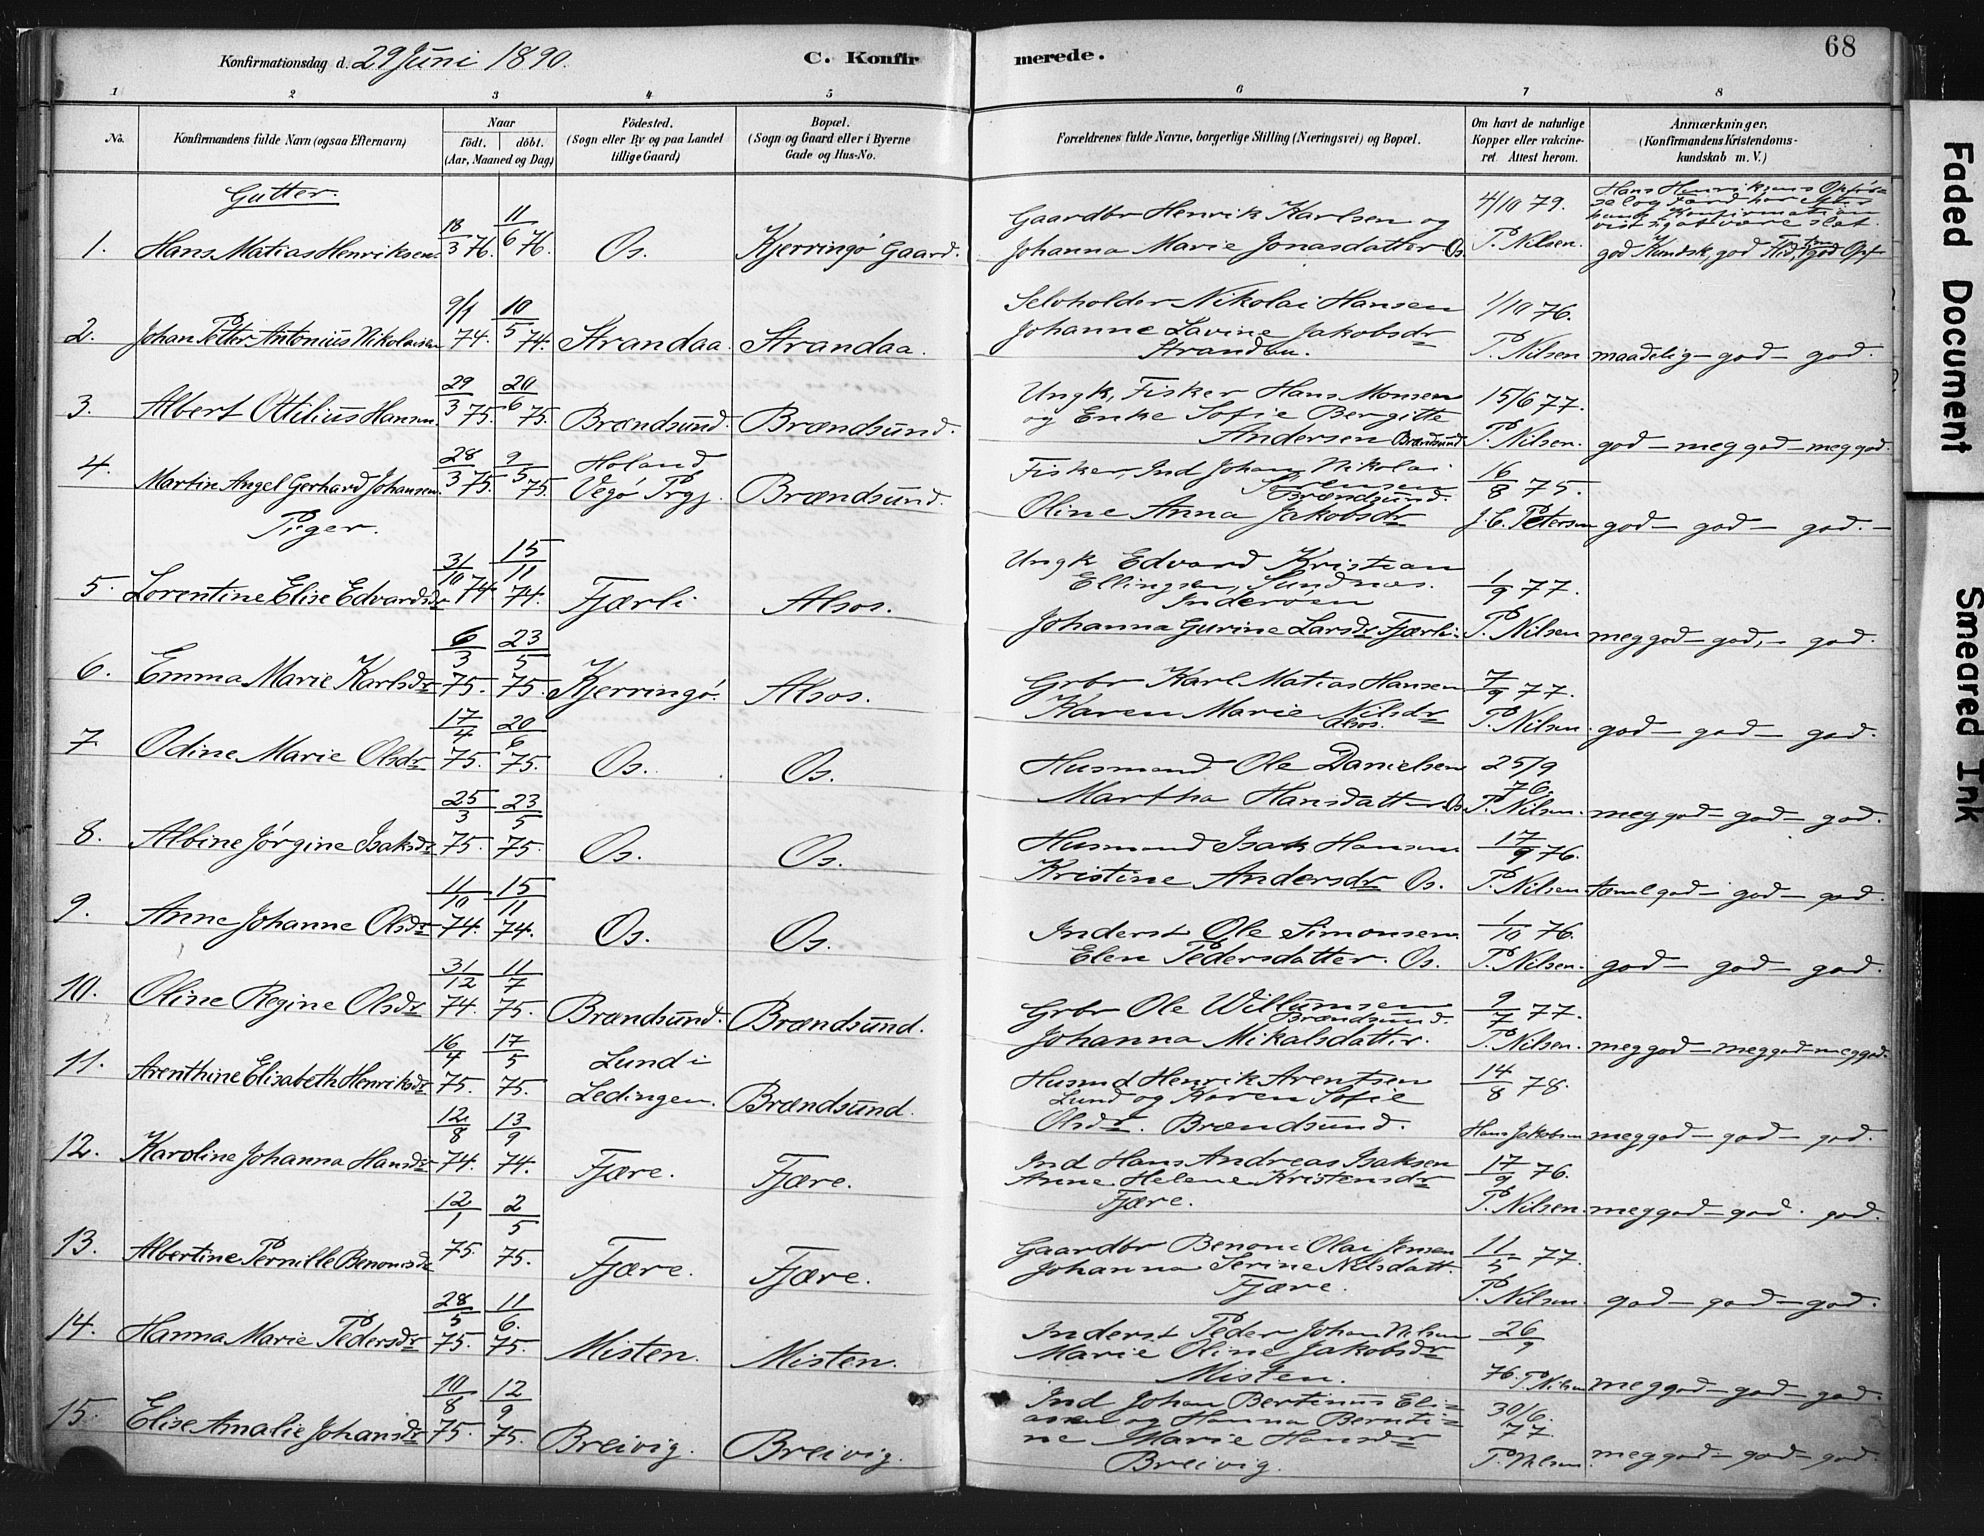 Konfirmationsdag d. 29 Juni 1890.
C. Konfirmerede.
68
1 2 3 4 5 6 7 8
No.
Konfirmandens fulde Navn (ogsaa Efternavn)
Naar
født. døbt.
(Aar, Maaned og Dag)
Fødested.
(Sogn eller By og paa Landet
tillige Gaard)
Bopæl.
(Sogn og Gaard eller i Byerne
Gade og Hus-No.
Forældrenes fulde Navne, borgerlige Stilling (Næringsvei) og Bopæl.
Om havt de naturlige
Kopper eller vakcine-
ret. Attest herom.
Anmærkninger,
(Konfirmandens Kristendoms-
kundskab m. V.)
Gutter.
1. Hans Matias Henriksen 18/3 76. 11/6 76. Os. Kjerringø Gaard.
Gaardbr Henrik Karlsen og
Johanna Marie Jonasdatter Os.
4/10 79.
P. Nilsen.
god Kundsk, god Flid, god Opf.
2. Johan Petter Antonius Nikolaisen 9/1 74. 10/5 74. Strandaa. Strandaa.
Selvholder Nikolai Hansen
Johanne Lavine Jakobsdr
Strandaa.
1/10 76.
P. Nilsen
maadelig - god - god.
3. Albert Ottilius Hansen 29/3 75. 20/6 75. Brændsund. Brændsund.
Ungk, Fisker Hans Monsen
og Enke Sofie Bergitte
Andersen Brændsund
15/6 77.
P. Nilsen.
god - meg god - meg god.
4. Martin Angel Gerhard Johansen. 28/3 75. 9/5 75. Holand, Vegø Prgj. Brændsund.
Fisker, Ind Johan Nikolai
Sørensen
Brændsund.
Oline Anna Jakobsdr
16/8 75.
J. C. Petersen
god - god - god. -
Piger.
5. Lorentine Elise Edvardsdr 31/10 74 15/11 74. Fjærli Alsos.
Ungk Edvard Kristian
Ellingsen, Sundnæs.
Inderøen
Johanna Gurine Larsdr Fjærli.
1/9 77.
P. Nilsen
meg god - god, - god.
6. Emma Marie Karlsdr 6/3 75. 23/5 75. Kjerringø. Alsos.
Grbr Karl Matias Hansen
Karen Marie Nilsdr
Alsos.
7/9 77.
P. Nilsen.
god - god - god.
7 Odine Marie Olsdr 17/4 75. 20/6 75. Os. Os.
Husmand Ole Danielsen
Martha Hansdatter Os.
25/9
76.
P. Nilsen.
meg god - god - god.
8. Albine Jørgine Isaksdr 25/3 75. 23/5 75. Os. Os.
Husmand Isak Hansen
Kristine Andersdr Os.
17/9 76.
P. Nilsen
god - god - god.
9. Anne Johanne Olsdr 11/10 74. 15/11 74. Os. Os.
Inderst Ole Simonsen
Elen Pedersdatter. Os.
1/10 76.
P. Nilsen.
god - god - god.
10. Oline Regine Olsdr 31/12 74. 11/7 75. Brændsund. Brændsund.
Grbr Ole Willumsen
Brændsund.
Johanna Mikalsdatter.
9/7 77.
P. Nilsen.
meg god - meg god - meg god.
11. Arenthine Elisabeth Henriksdr 16/4 75. 17/5 75. Lund i Lødingen. Brændsund.
Husmd Henrik Arentsen
Lund og Karen Sofie
Olsdr. Brændsund.
14/8 78.
Hans Jakobsen
meg god - god - god.
12. Karoline Johanna Hansdr 12/8 74. 13/9 74. Fjære. Fjære.
Ind Hans Andreas Isaksen
Anne Helene Kristensdr
Fjære.
17/9 76.
P. Nilsen.
meg god - god. god.
13. Albertine Pernille Benonisdr 12/1 75. 2/5 75. Fjære. Fjære.
Gaardbr Benoni Olai Jensen
Johanna Serine Nilsdatt.
Fjære.
11/5 77.
P. Nilsen.
god - god - god.
14. Hanna Marie Pedersdr 28/5 75. 11/6. 75. Misten. Misten.
Inderst Peder Johan Nilsen
Marie Oline Jakobsdr
Misten.
26/9
76. P. Nilsen
meg god - god - god.
15. Elise Amalie Johansdr 10/8 75. 12/9 75. Breivig. Breivig.
Ind Johan Bertinus Eli=
assen og Hanna Bernti=
ne Marie Hansdr
Breivig.
30/6.
77.
P. Nilsen
meg god - god - god.
Faded Document
Smeared Ink